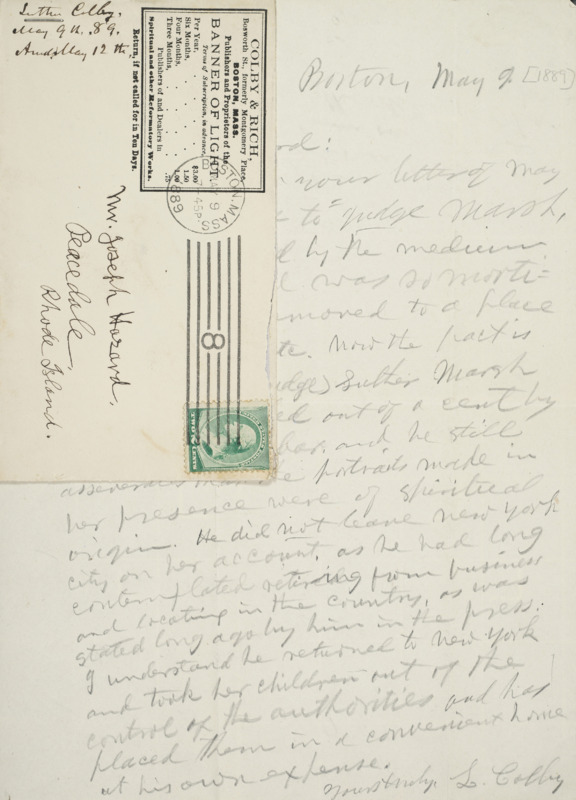 Luther Colby.
May 9th. 89.
Ansd. May 12th.
COLBY & RICH,
Bosworth St., formerly Montgomery Place,
BOSTON, MASS.
Publishers and Proprietors of the
BANNER OF LIGHT.
Terms of Subscription, in advance.
Per Year, $3.00
Six Months, 1.50
Four Months, 1.00
Three Months,
Publishers of and Dealers in
Spiritual and other Reformatory Works.
Return, if not called for in Ten Days.
BOSTON, MASS
MAY 9
7-45P
1889
8
Mr. Joseph Hazard,
Peacedale,
Rhode Island.
TWO CENTS
Boston, May 9 [1889]
rd:
your letter of May
to Judge Marsh,
by the medium
was so morti=
moved to a place
etc. Now the fact is
udge) Luther Marsh
ed out of a cent by
and he still
asseverates the portraits made in
her presence were of spiritual
origin. He did not leave New York
city on her account, as he had long
contemplated retiring from business
and locating in the country, as was
stated long ago by him in the press.
I understand he returned to New York
and took her children out of the
control of the authorities and has
placed them in a convenient home
at his own expense.
Yours truly, L. Colby